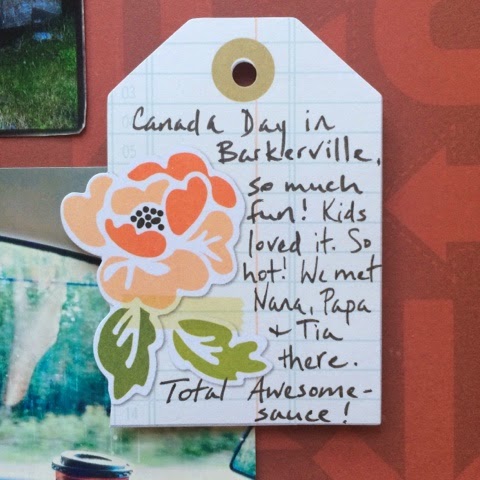 Canada Day in
Barkerville,
so much
fun! Kids
loved it. So
hot! We met
Nana, Papa
+ Tia
there.
Total Awesome-
sauce!
03
05
14